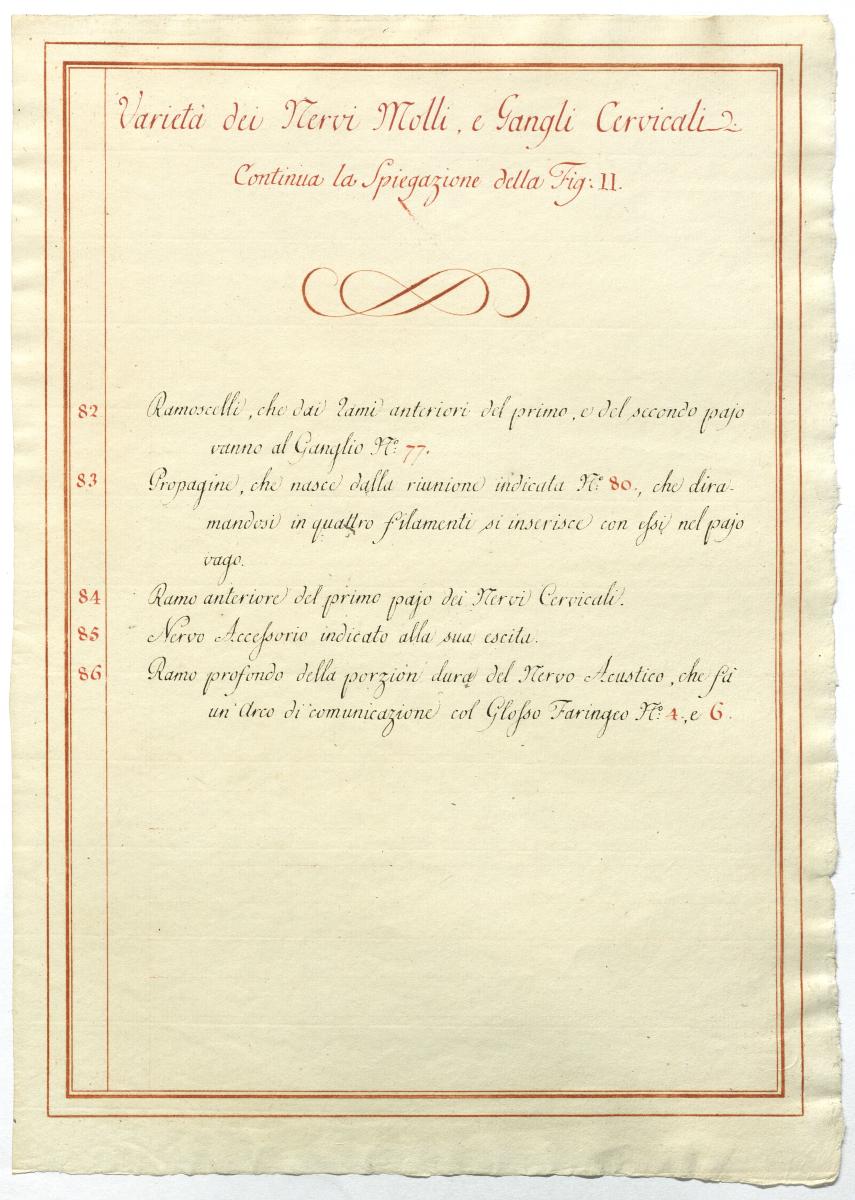 Varietà dei Nervi Molli, e Gangli Cervicali 2.
Continua la Spiegazione della Fig: II.
82 Ramoscelli, che dai rami anteriori del primo, e del secondo pajo
vanno al Ganglio N.º 77.
83 Propagine, che nasce dalla riunione indicata N.º 80., che dira-
mandosi in quattro filamenti si inserisce con essi nel pajo
vago.
84 Ramo anteriore del primo pajo dei Nervi Cervicali.
85 Nervo Accessorio indicato alla sua escita.
86 Ramo profondo della porzion dura del Nervo Acustico, che fà
un' Arco di comunicazione col Glosso Faringeo N.º 4., e 6.